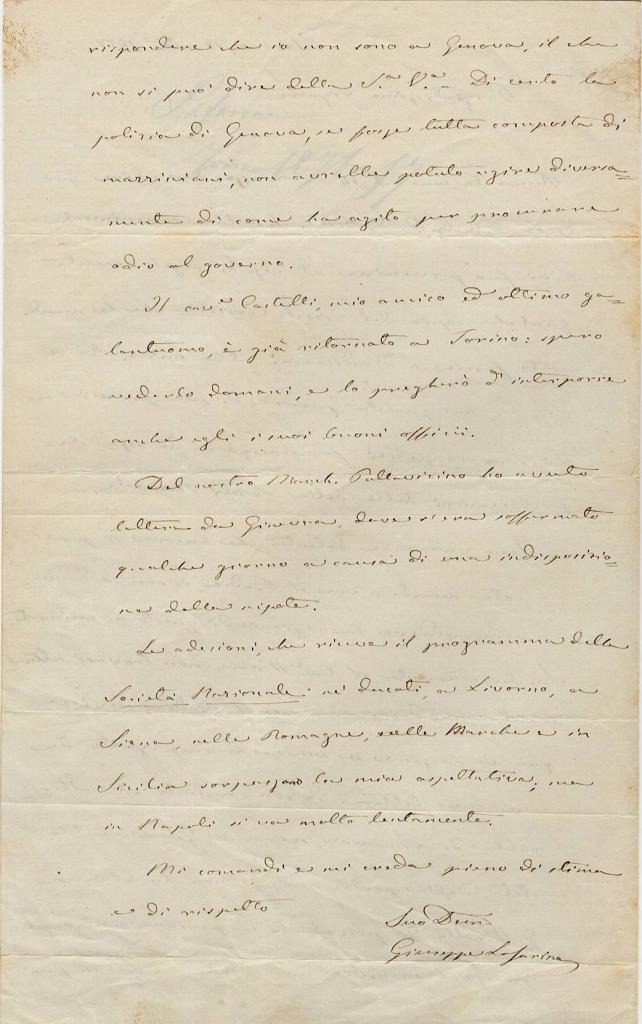 rispondere che io non sono a Genova, il che
non si può dire della S.ª V.ª Di certo la
polizia di Genova, se fosse tutta composta di
mazziniani, non avrebbe potuto agire diversa=
mente di come ha agito per procurare
odio al governo.
Il cav.e Castelli, mio amico ed ottimo ga=
lantuomo, è già ritornato a Torino: spero
vederlo domani, e lo pregherò d'interporre
anche egli i suoi buoni officii.
Del nostro March. Pallavicino ho avuto
lettera da Ginevra, dove si era soffermato
qualche giorno a causa di una indisposizio=
ne della nipote.
Le adesioni, che riceve il programma della
Società Nazionale ne' ducati, a Livorno, a
Siena, nelle Romagne, nelle Marche e in
Sicilia sorpassano la mia aspettativa; ma
in Napoli si va molto lentamente.
Mi comandi e mi creda pieno di stima
e di rispetto
Suo Dev.
Giuseppe La Farina